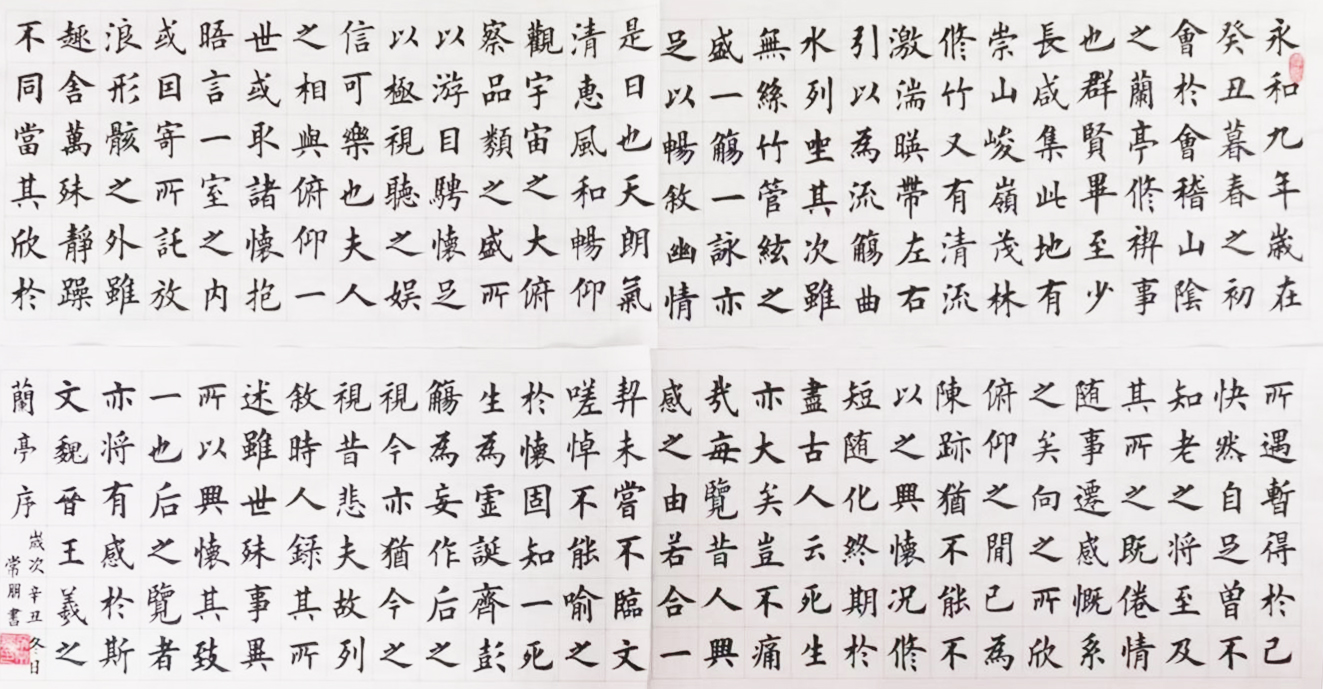 永和九年歲在
癸丑暮春之初
會於會稽山陰
之蘭亭修禊事
也群賢畢至少
長咸集此地有
崇山峻嶺茂林
修竹又有清流
激湍暎帶左右
引以為流觴曲
水列坐其次雖
無絲竹管絃之
盛一觴一詠亦
足以暢敘幽情
是日也天朗氣
清惠風和暢仰
觀宇宙之大俯
察品類之盛所
以游目騁懷足
以極視聽之娛
信可樂也夫人
之相與俯仰一
世或取諸懷抱
晤言一室之內
或因寄所託放
浪形骸之外雖
趣舍萬殊靜躁
不同當其欣於
所遇暫得於己
快然自足曾不
知老之將至及
其所之既倦情
随事遷感慨系
之矣向之所欣
俯仰之間已為
陳跡猶不能不
以之興懷况修
短随化終期於
盡古人云死生
亦大矣豈不痛
哉每覽昔人興
感之由若合一
契未嘗不臨文
嗟悼不能喻之
於懷固知一死
生為虛誕齊彭
觴為妄作后之
視今亦猶今之
視昔悲夫故列
敘時人録其所
述雖世殊事異
所以興懷其致
一也后之覽者
亦將有感於斯
文魏晉王羲之
蘭亭序
歲次辛丑冬日
常朋書